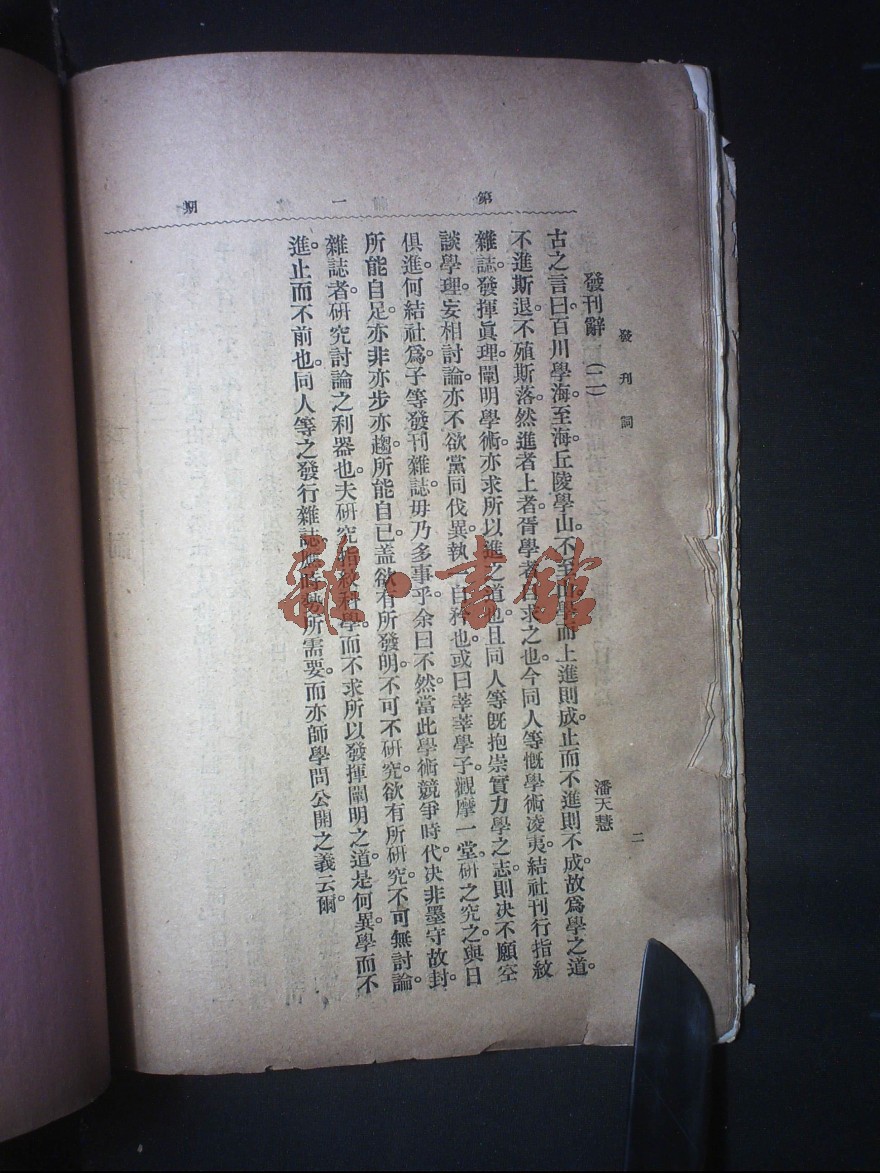 發刊詞
二
第一期
發刊辭（二）
潘天慧
古之言曰百川學海。至海。丘陵學山。不至山。學而上進則成。止而不進則不成。故爲學之道。
不進斯退。不殖斯落。然進者上者。胥學者自求之也。今同人等慨學術凌夷。結社刊行指紋
雜誌。發揮眞理。闡明學術。亦求所以進之道也。且同人等旣抱崇實力學之志。則决不願空
談學理。妄相討論。亦不欲黨同伐異。執一自矜也。或曰莘莘學子。觀摩一堂。研之究之。與日
俱進。何結社爲。子等發刊雜誌。毋乃多事乎。余曰不然。當此學術競爭時代。决非墨守故封。
所能自足。亦非亦步亦趨。所能自已。盖欲有所發明。不可不研究。欲有所研究。不可無討論。
雜誌者。研究討論之利器也。夫研究指紋科學。而不求所以發揮闡明之道。是何異學而不
進。止而不前也。同人等之發行雜誌。應時勢所需要。而亦師學問公開之義云爾。
雜·書館